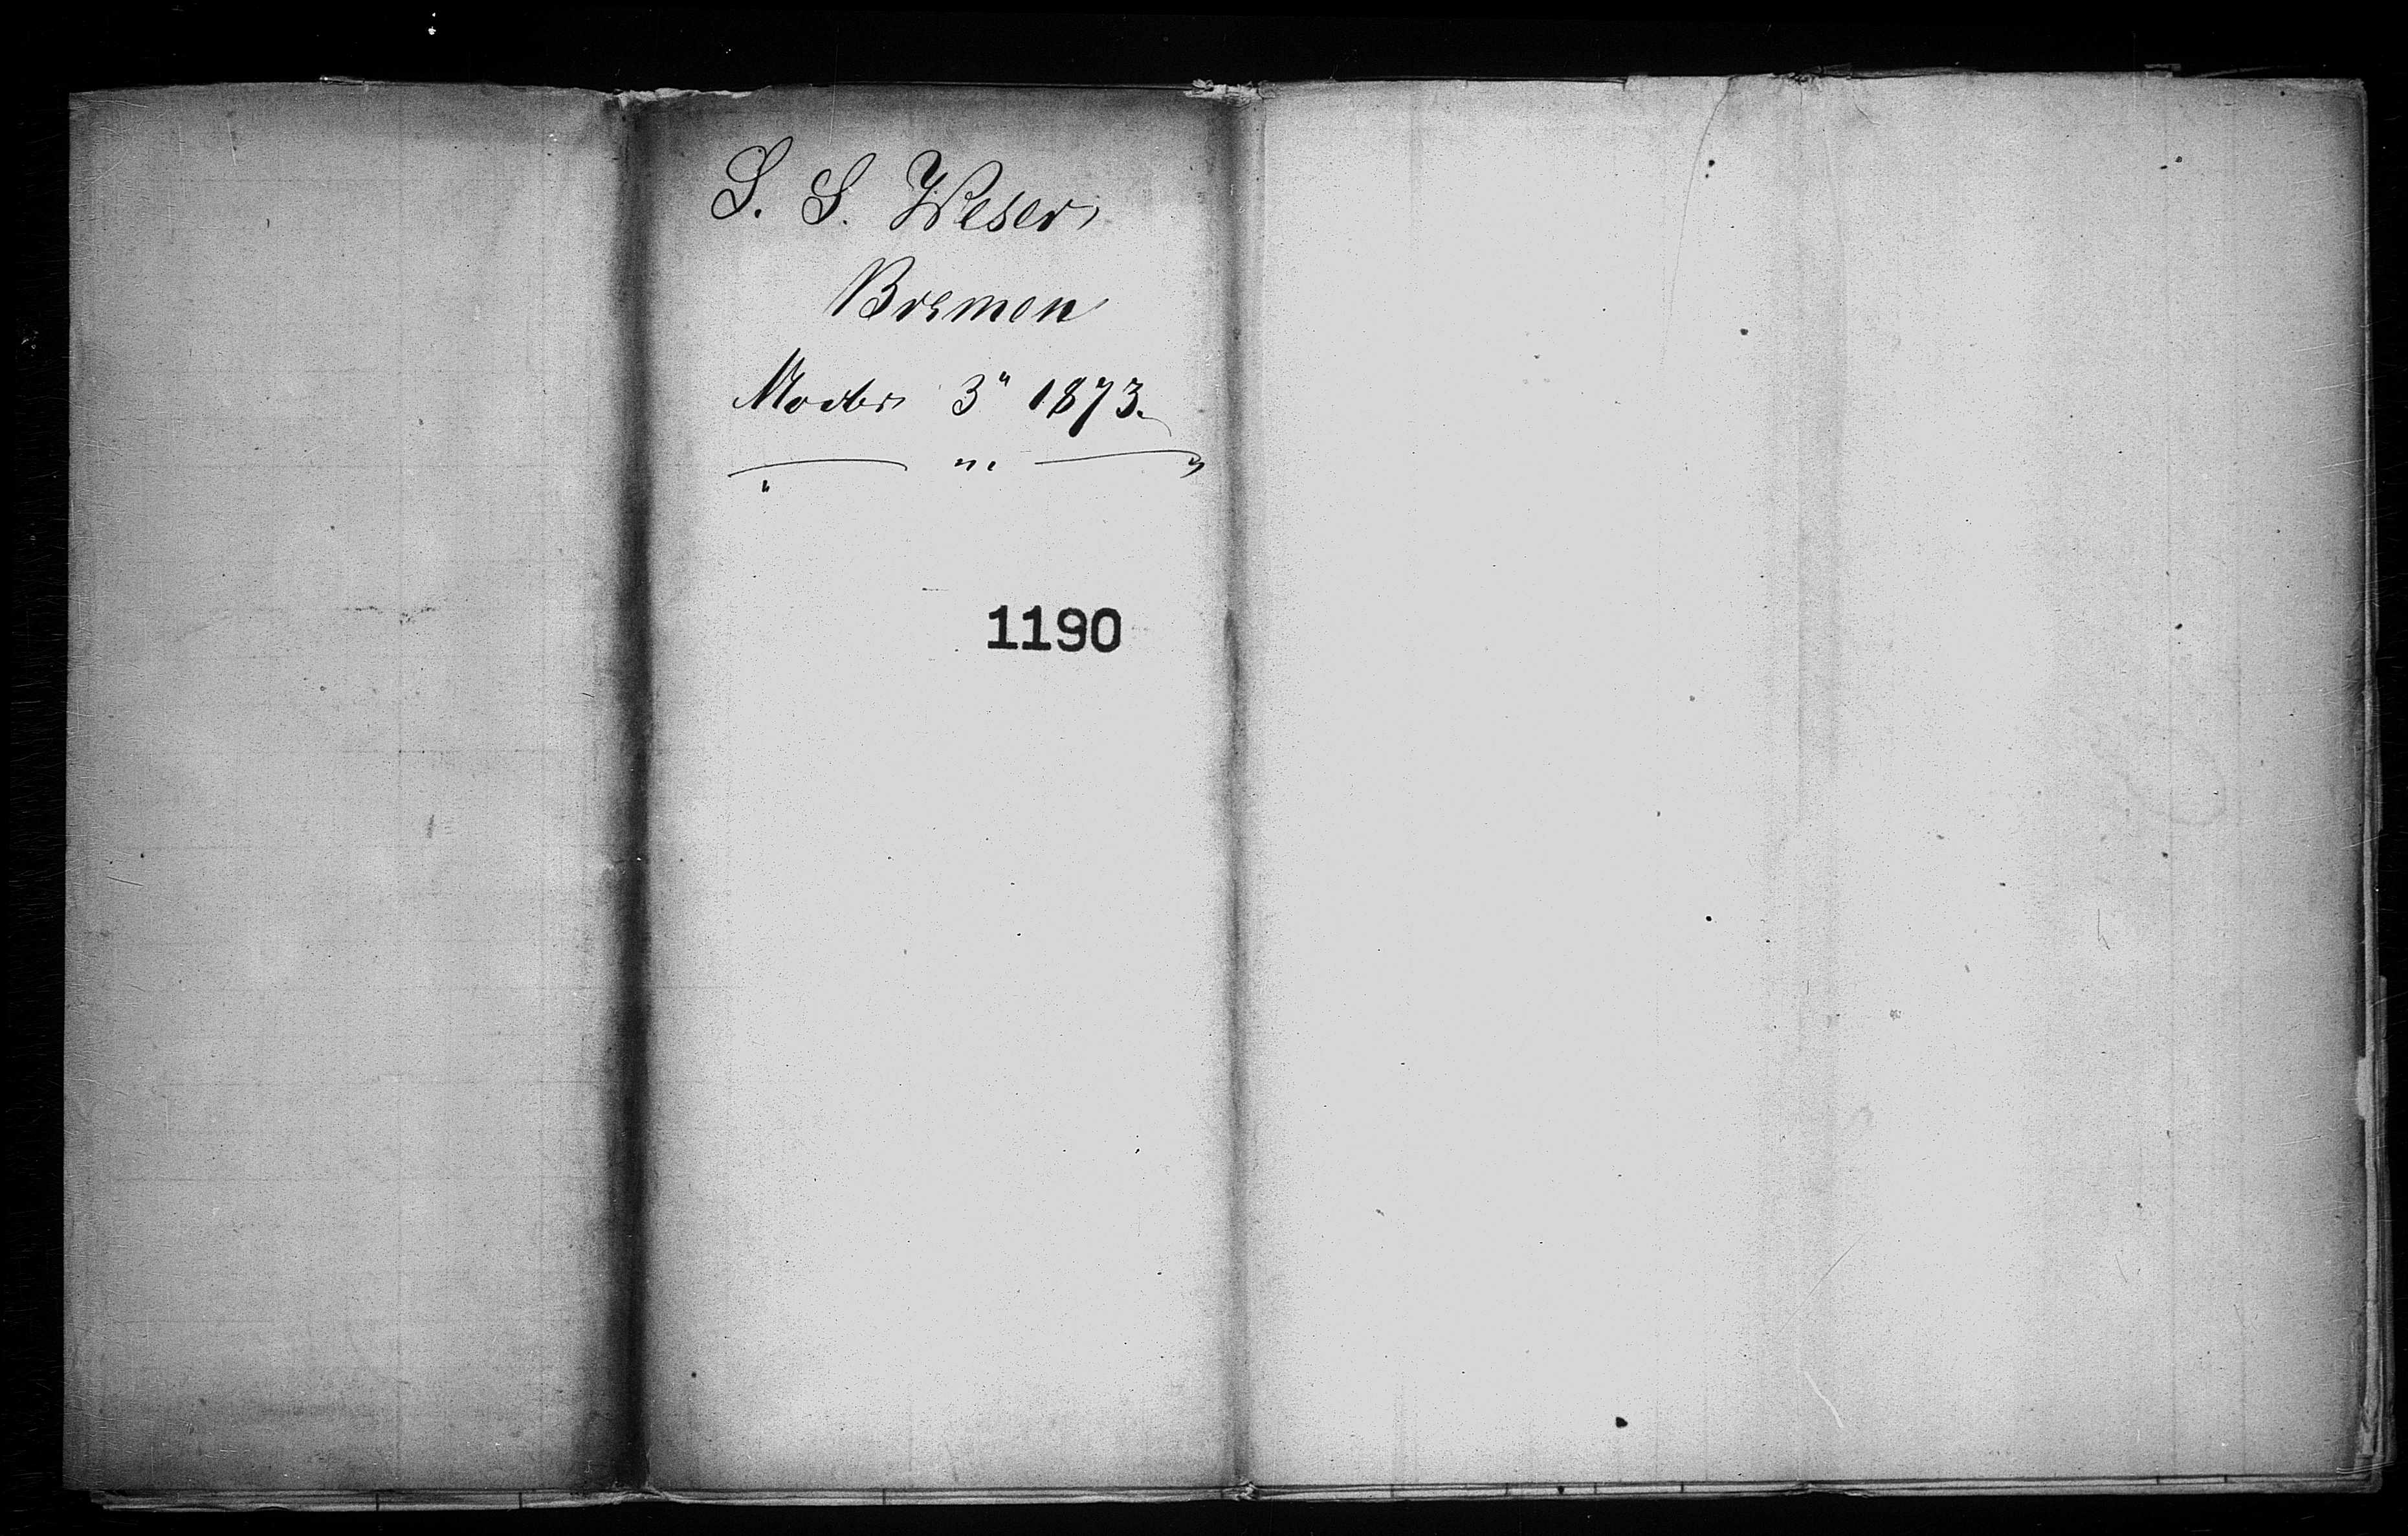 S. S. Weser
Bremen
Novbr 3" 1873.
1190